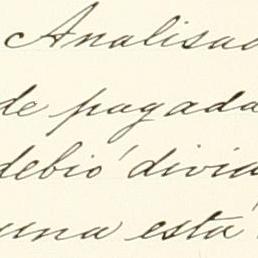 Analisad
de pagada
debió divid
una está